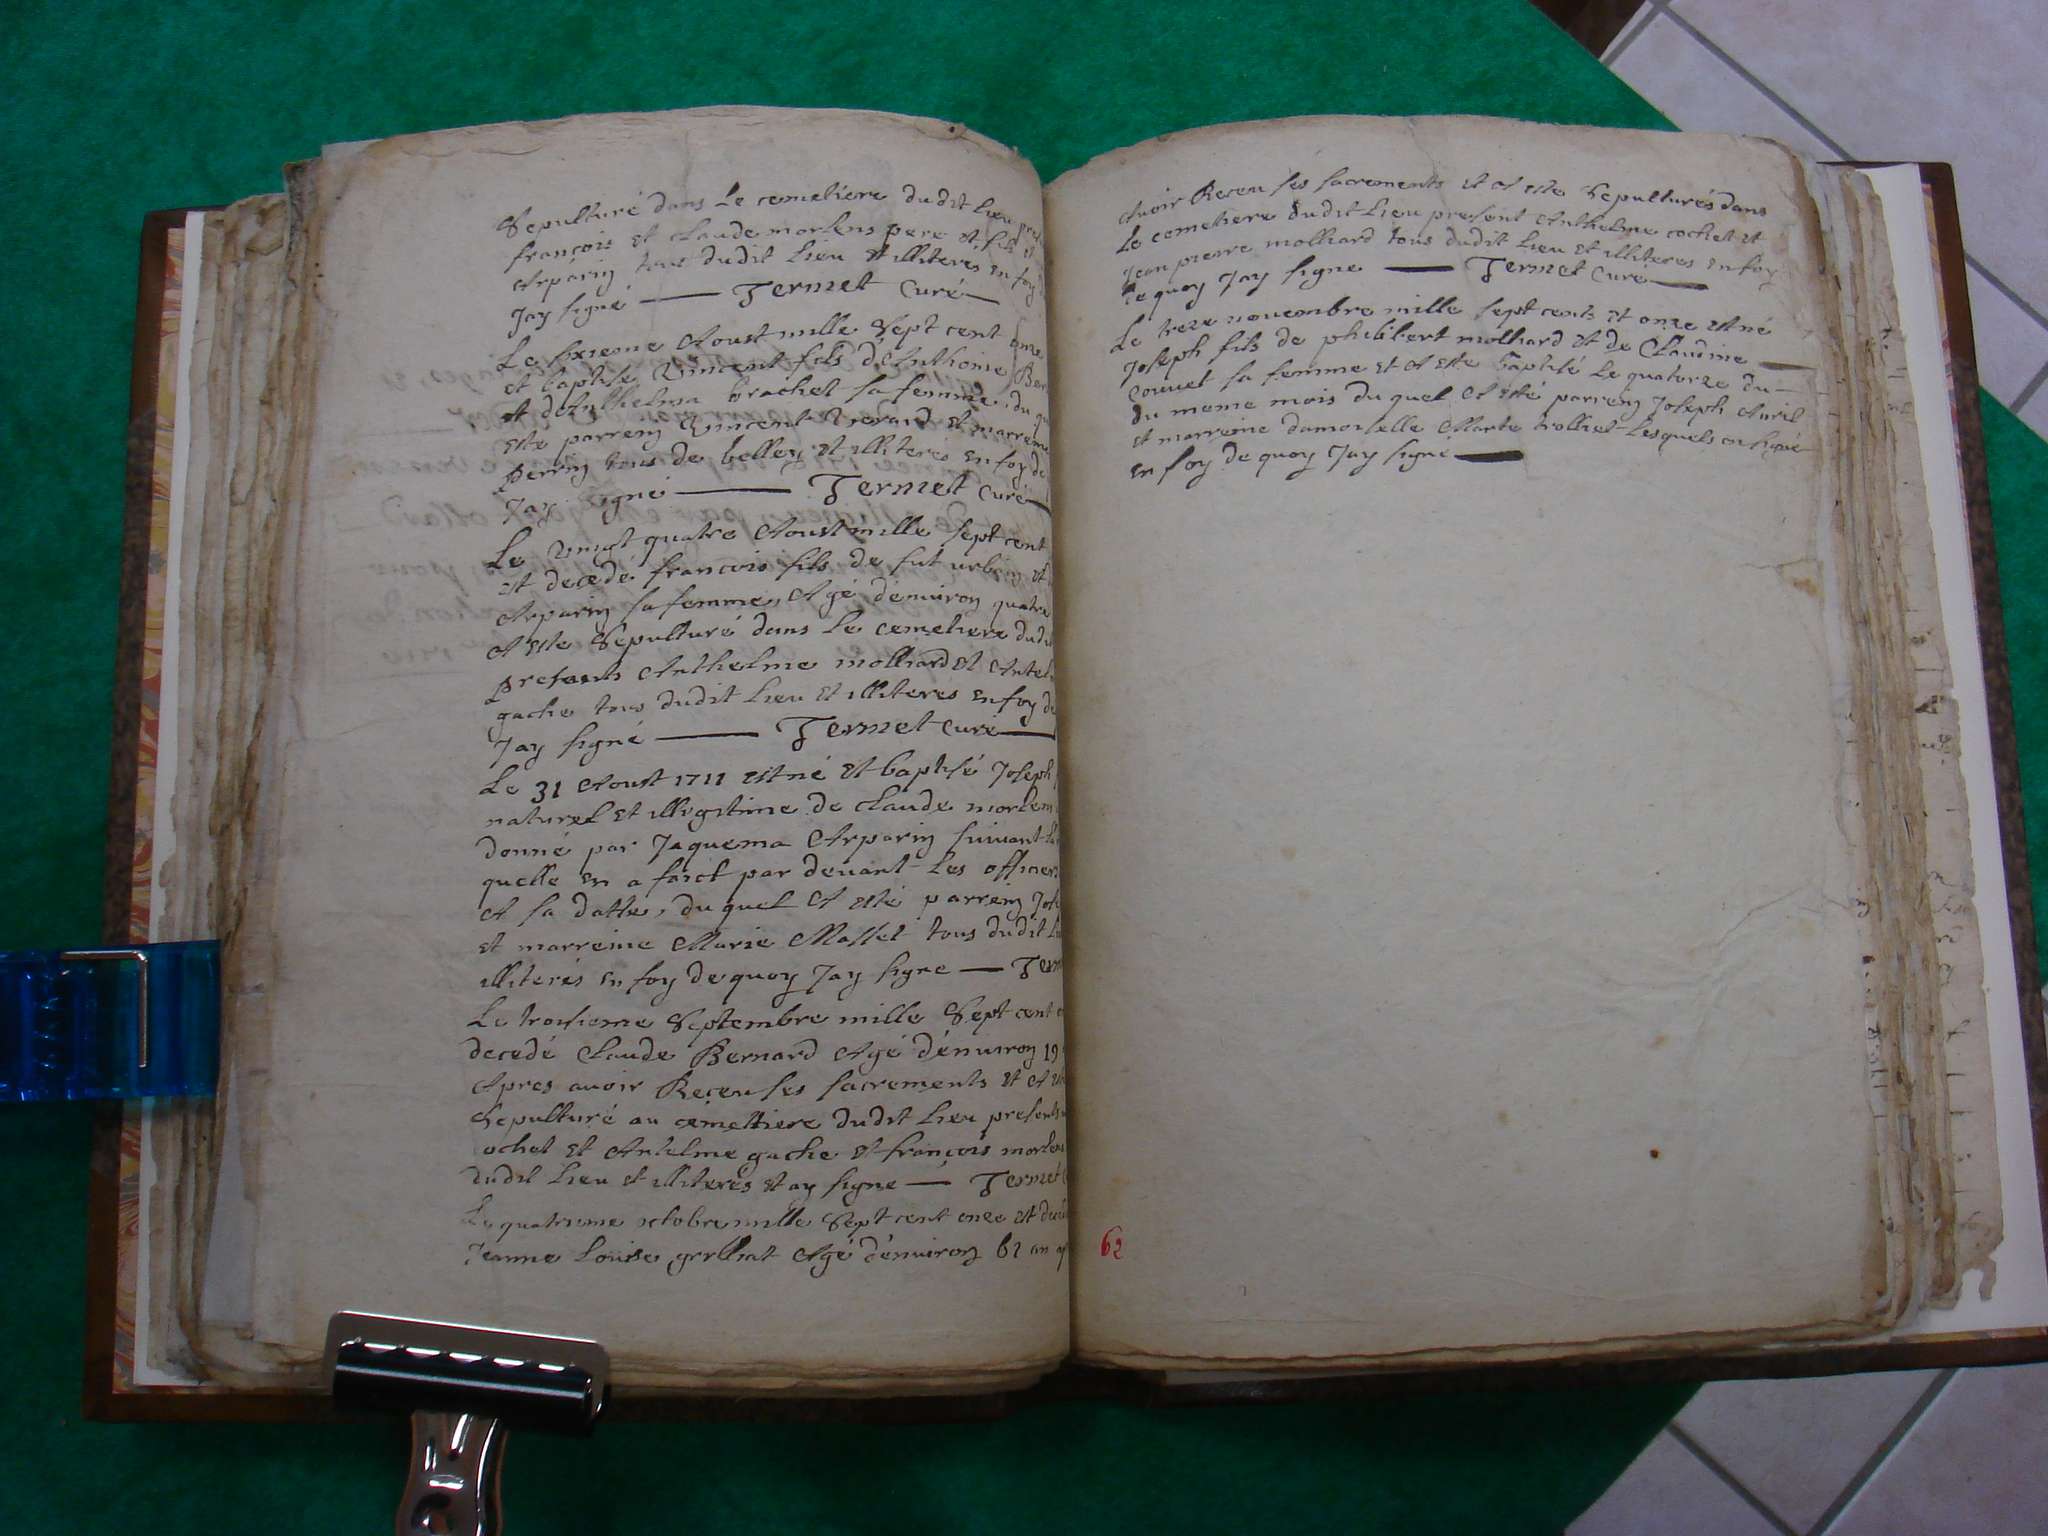 Sepulturé dans le cemetiere dudit lieu
françois et claude morlens pere et fils et
Arparin tous dudit lieu et illiteres en foy
Jay signé — Termet Curé —
Le sixieme Aoust mille sept cent onze
et baptise Vincent fils d'Anthoine Ber
et d'Anthelma brachet sa femme, du qu
este parrein Vincent et marreine
perrin tous de belley et illiteres en foy de
Jay signé — Termet Curé
Le vingt quatre Aoust mille sept cent
est decedé francois fils de fut urbain et
Arparin sa femme, Agé d'environ quatre
A este Sepulturé dans le cemetiere dudi
presents Anthelme molliard et Antel
gache tous dudit lieu et illiteres en foy de
Jay signé — Termet Curé —
Le 31 Aoust 1711 est né et baptisé Joseph
naturel et illegitime de claude morlens
donné par Jaquema Arparin suivant la
quelle en a faict par devant les officiers
A sa datte, du quel A esté parrein Jos
et marreine Marie Masset tous dudit li
illiterés en foy de quoy Jay signe — Term
Le troisieme Septembre mille Sept cent
decedé Claude Bernard Agé d'environ 19
Apres avoir Receu ses sacrements et A
Sepulturé au cemettiere dudit lieu presents
ochet et Antelme gache et françois morlens
dudit lieu et illiterés et ay signe — Termet
Le quatrieme octobre mille Sept cent onze est decé
Jeanne Louise grilliat Agé d'environ 62 an ap
Avoir Receu ses sacrements et A este Sepulturés dans
Le cemetiere dudit lieu present Anthelme cochet et
Jean pierre molliard tous dudit lieu et illiteres en foy
de quoy Jay signe — Termet Curé —
Le treze novembre mille sept cents et onze est né
Joseph fils de philibert molliard et de Claudine —
couvet sa femme et A este baptisé le quatorze du —
du meme mois du quel A esté parrein Joseph Avril
et marreine damoiselle Marte trolliet lesquels on signé
en foy de quoy Jay signé —
62